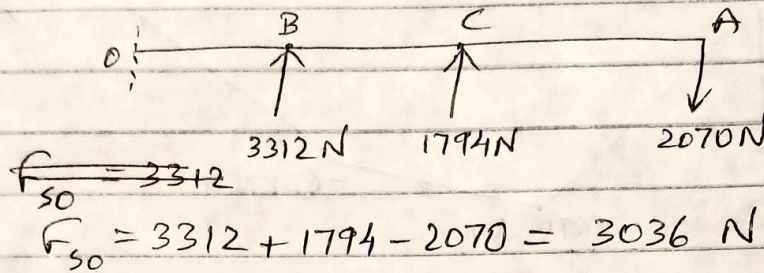 O B C A
3312N 1794N 2070N
F_SO = 3312
F_SO = 3312 + 1794 - 2070 = 3036 N